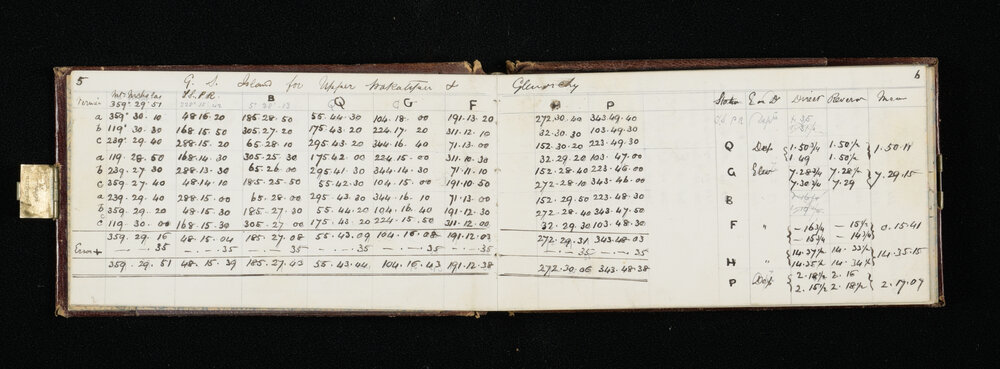 5 G. S. Island for Upper Wakatipu & Glenorchy 6
Mt Nicholas B Q G F H P Station E or D Direct Reverse Mean
Vernier 359° 29' 51
a 359° 30. 10 48 16. 20 185. 28. 50 55. 44. 30 104. 18. 00 191. 13. 20 272. 30. 40 343. 49. 40
b 119° 30. 30 168. 15. 50 305. 27. 20 175. 43. 20 224. 17. 20 311. 12. 10 32. 30. 30 103. 49. 30
c 239. 29. 40 288. 15. 20 65. 28. 10 295. 43. 20 344. 16. 40 71. 13. 00 152. 30. 20 223. 49. 30 Q Dep. 1. 50 3/4 1. 50 1/2 1. 50. 11
a 119. 28. 50 168. 14. 30 305. 25. 30 175. 42. 00 224. 15. 00 311. 10. 30 32. 29. 20 103. 47. 00 1 49 1. 50 1/2
b 239. 27. 30 288. 13. 30 65. 26. 00 295. 41. 30 344. 14. 30 71. 11. 10 152. 28. 40 223. 46. 00 G Elev 7. 28 3/4 7. 28 1/2 7. 29. 15
c 359. 27. 40 48. 14. 10 185. 25. 50 55. 42. 30 104. 15. 00 191. 10. 50 272. 28. 10 343. 46. 00 7. 30 3/4 7. 29
a 239. 29. 40 288. 15. 00 65. 28. 00 295. 43. 30 344. 16. 10 71. 13. 00 152. 29. 50 223. 48. 30 B
b 359. 29. 20 48. 15. 30 185. 27. 30 55. 44. 20 104. 16. 40 191. 12. 30 272. 28. 40 343. 47. 50
c 119. 30. 00 168. 15. 30 305. 27. 30 175. 43. 20 224. 15. 50 311. 12. 00 32. 29. 30 103. 48. 30 F " - 16 3/4 - 15 1/2 0. 15. 41
359. 29. 16 48. 15. 04 185. 27. 08 55. 43. 09 104. 16. 08 191. 12. 03 272. 29. 31 343. 48. 03 - 15 1/2 - 14 3/4
Error + . 35 . 35 . 35 . 35 . 35 . 35 . 35 . 35 H " 14. 37 1/2 14. 33 1/2 14. 35. 15
359. 29. 51 48. 15. 39 185. 27. 43 55. 43. 44 104. 16. 43 191. 12. 38 272. 30. 06 343. 48. 38 14. 35 1/2 14. 34 1/2
P Dep. 2. 18 1/2 2. 16 2. 17. 07
2. 15 1/2 2. 18 1/2